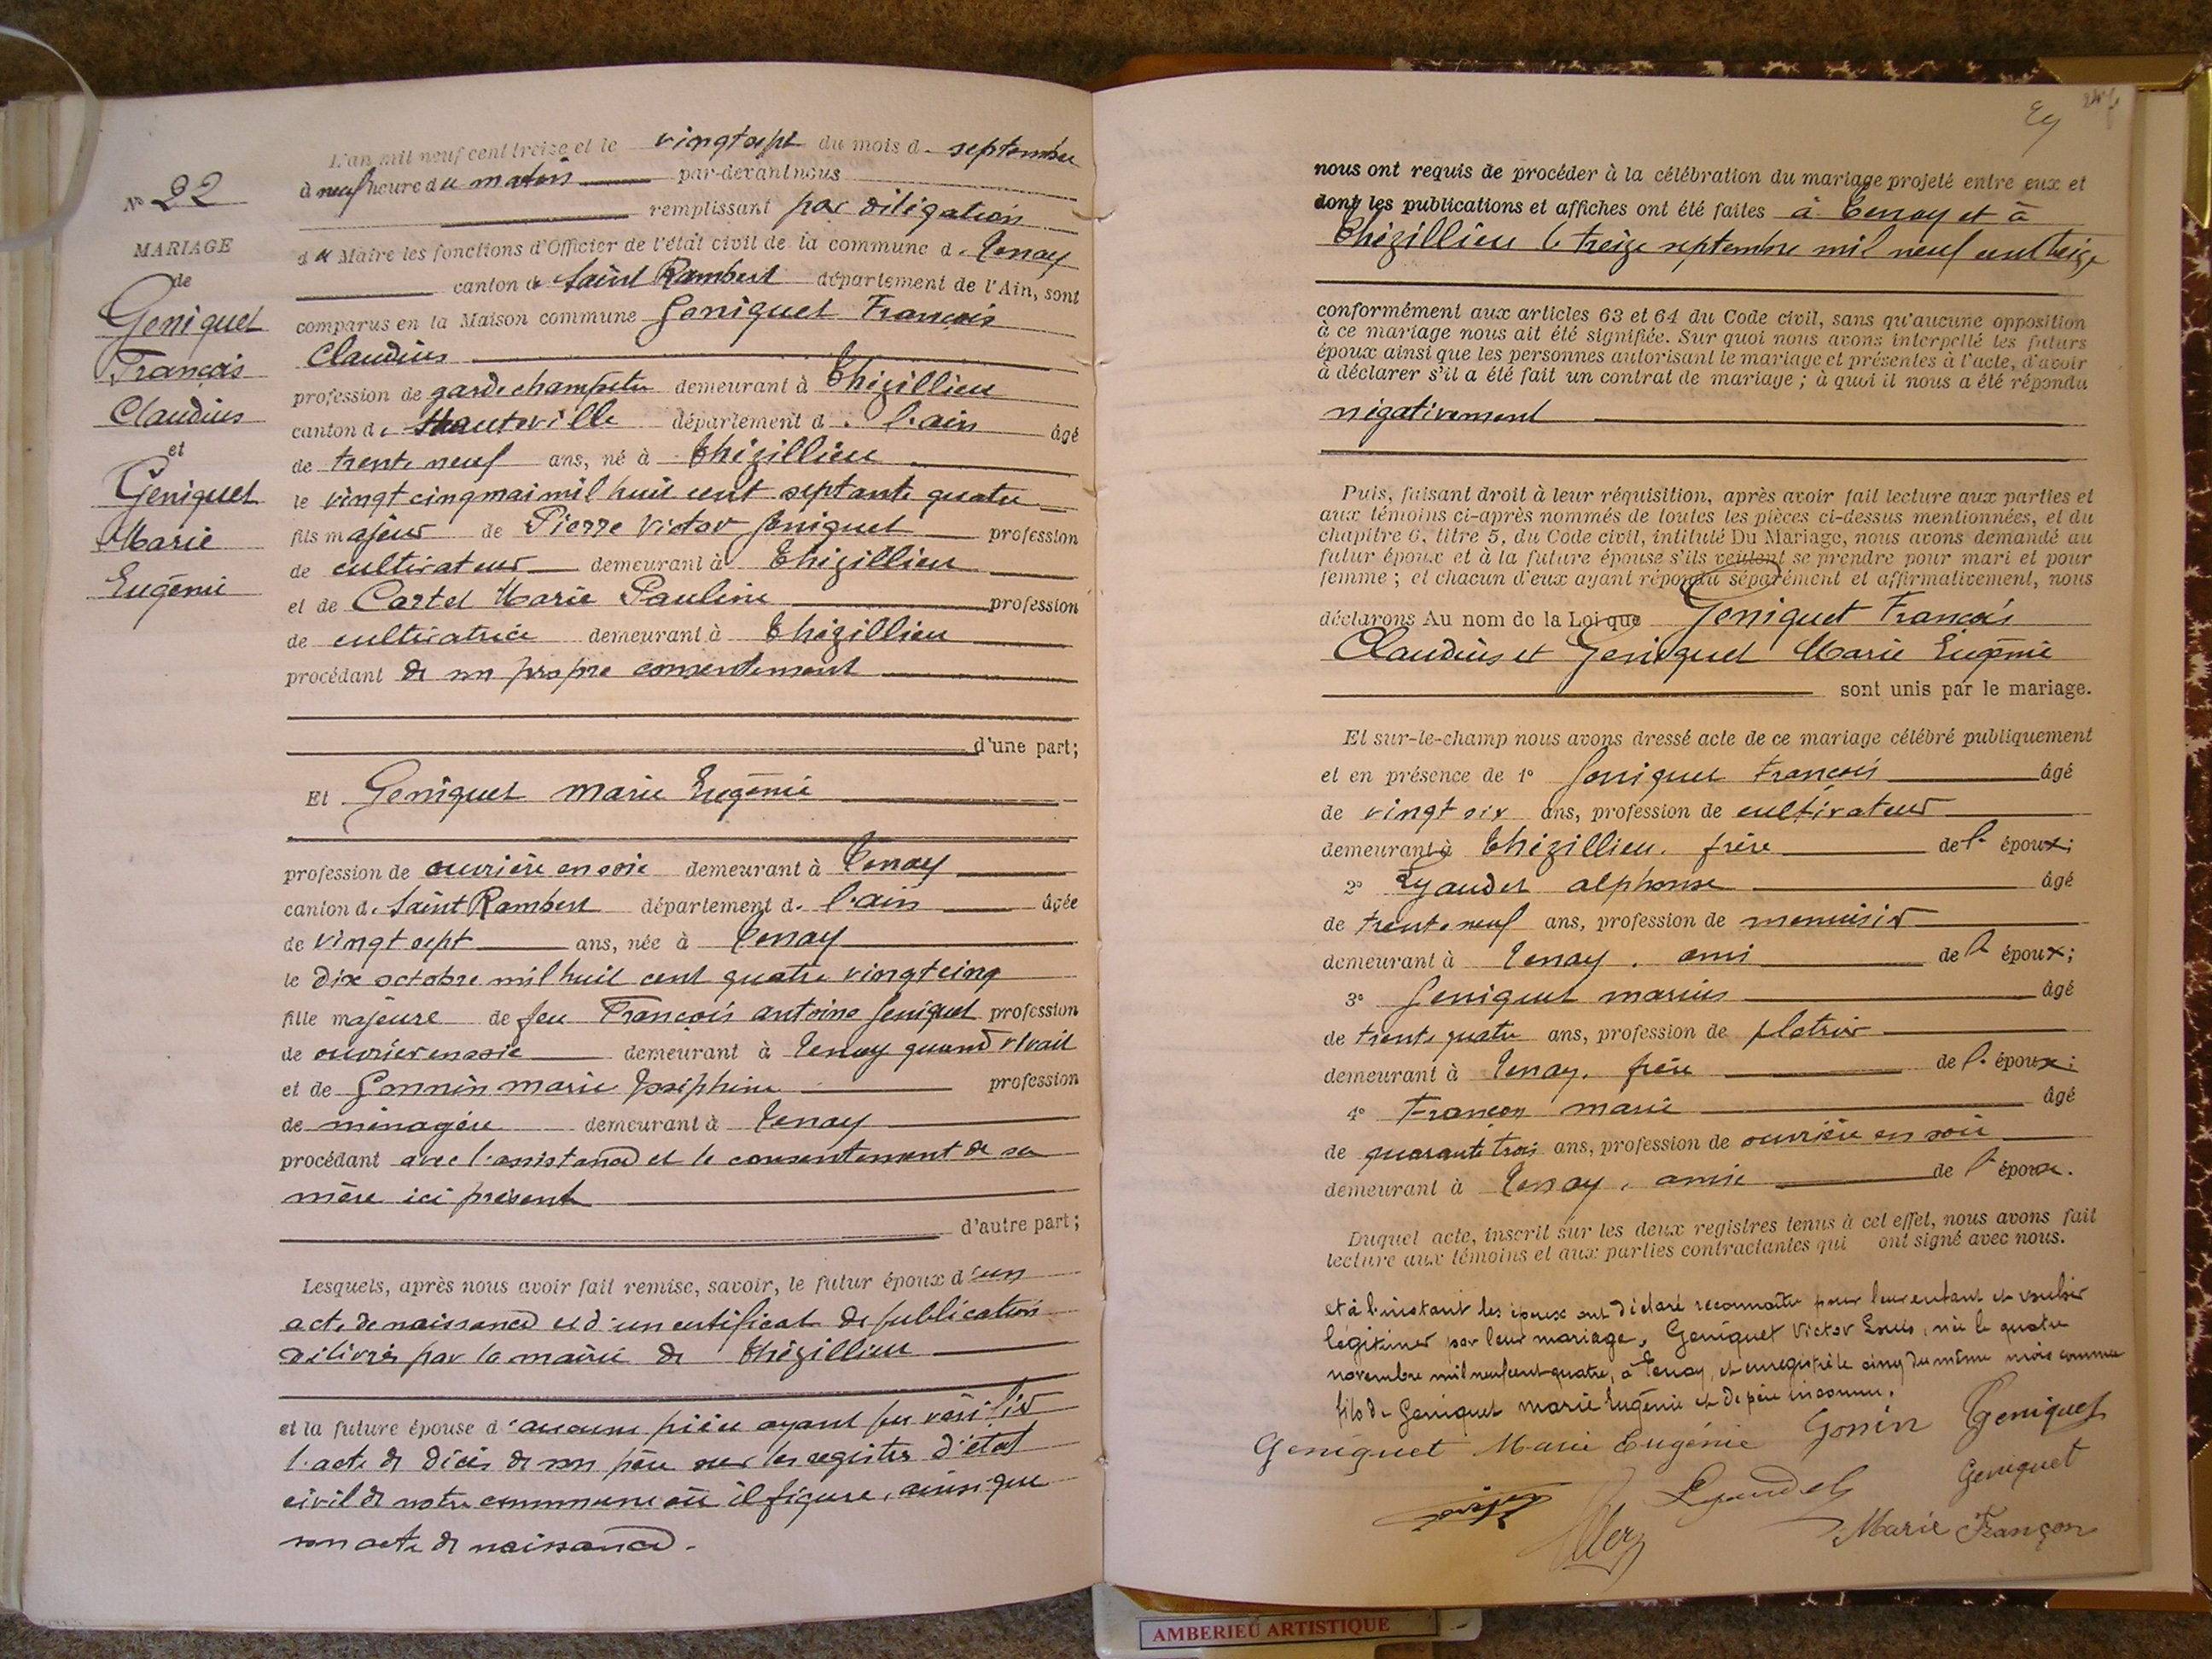 L'an mil neuf cent treize et le vingt sept du mois d. septembre
à neuf heure du matin par-devant nous
remplissant par délégation
du Maire les fonctions d'Officier de l'état civil de la commune d. Tenay
canton de Saint Rambert département de l'Ain, sont
comparus en la Maison commune Geniquet François
Claudius
profession de garde champêtre demeurant à Thézillieu
canton d. Hauteville département d. l'ain âgé
de trente neuf ans, né à Thézillieu
le vingt cinq mai mil huit cent septante quatre
fils majeur de Pierre Victor Geniquet profession
de cultivateur demeurant à Thézillieu
et de Cartel Marie Pauline profession
de cultivatrice demeurant à Thézillieu
procédant de son propre consentement
d'une part;
Et Geniquet marie Eugénie
profession de ouvrière en soie demeurant à Tenay
canton d. Saint Rambert département d. l'ain âgée
de vingt sept ans, née à Tenay
le dix octobre mil huit cent quatre vingt cinq
fille majeure de feu François antoine Geniquet profession
de ouvrier en soie demeurant à Tenay quand vivait
et de Gonnin marie Joséphine profession
de ménagère demeurant à Tenay
procédant avec l'assistance et le consentement de sa
mère ici présente
d'autre part;
Lesquels, après nous avoir fait remise, savoir, le futur époux d'un
acte de naissance et d'un certificat de publication
délivrés par la mairie de Thézillieu
et la future épouse d'aucune pièce ayant pu vérifier
l'acte de décès de son père sur les registres d'état
civil de notre commune où il figure, ainsi que
son acte de naissance.
No 22
MARIAGE
de
Geniquet
François
Claudius
et
Geniquet
Marie
Eugénie
nous ont requis de procéder à la célébration du mariage projeté entre eux et
dont les publications et affiches ont été faites à Tenay et à
Thézillieu le treize septembre mil neuf cent treize
conformément aux articles 63 et 64 du Code civil, sans qu'aucune opposition
à ce mariage nous ait été signifiée. Sur quoi nous avons interpellé les futurs
époux ainsi que les personnes autorisant le mariage et présentes à l'acte, d'avoir
à déclarer s'il a été fait un contrat de mariage ; à quoi il nous a été répondu
négativement
Puis, faisant droit à leur réquisition, après avoir fait lecture aux parties et
aux témoins ci-après nommés de toutes les pièces ci-dessus mentionnées, et du
chapitre 6, titre 5, du Code civil, intitulé Du Mariage, nous avons demandé au
futur époux et à la future épouse s'ils veulent se prendre pour mari et pour
femme ; et chacun d'eux ayant répondu séparément et affirmativement, nous
déclarons Au nom de la Loi que Geniquet François
Claudius et Geniquet Marie Eugénie
sont unis par le mariage.
Et sur-le-champ nous avons dressé acte de ce mariage célébré publiquement
et en présence de 1° Geniquet François âgé
de vingt six ans, profession de cultivateur
demeurant à Thézillieu. frère de l' époux;
2° alphonse âgé
de trente neuf ans, profession de menuisier
demeurant à Tenay. ami de l' époux;
3° Geniquet marius âgé
de trente quatre ans, profession de platrier
demeurant à Tenay. frère de l' époux;
4° Françon marie âgé
de quarante trois ans, profession de ouvrière en soie
demeurant à Tenay, amie de l' époux.
Duquel acte, inscrit sur les deux registres tenus à cet effet, nous avons fait
lecture aux témoins et aux parties contractantes qui ont signé avec nous.
et à l'instant les époux ont déclaré reconnaître pour leur enfant et vouloir
légitimer par leur mariage, Geniquet Victor Louis, né le quatre
novembre mil neuf cent quatre, à Tenay, et enregistré le cinq du même mois comme
fils de Geniquet marie Eugénie et de père inconnu.
Geniquet Marie Eugénie Gonin Geniquet
Geniquet
Marie Françon
AMBERIEU ARTISTIQUE